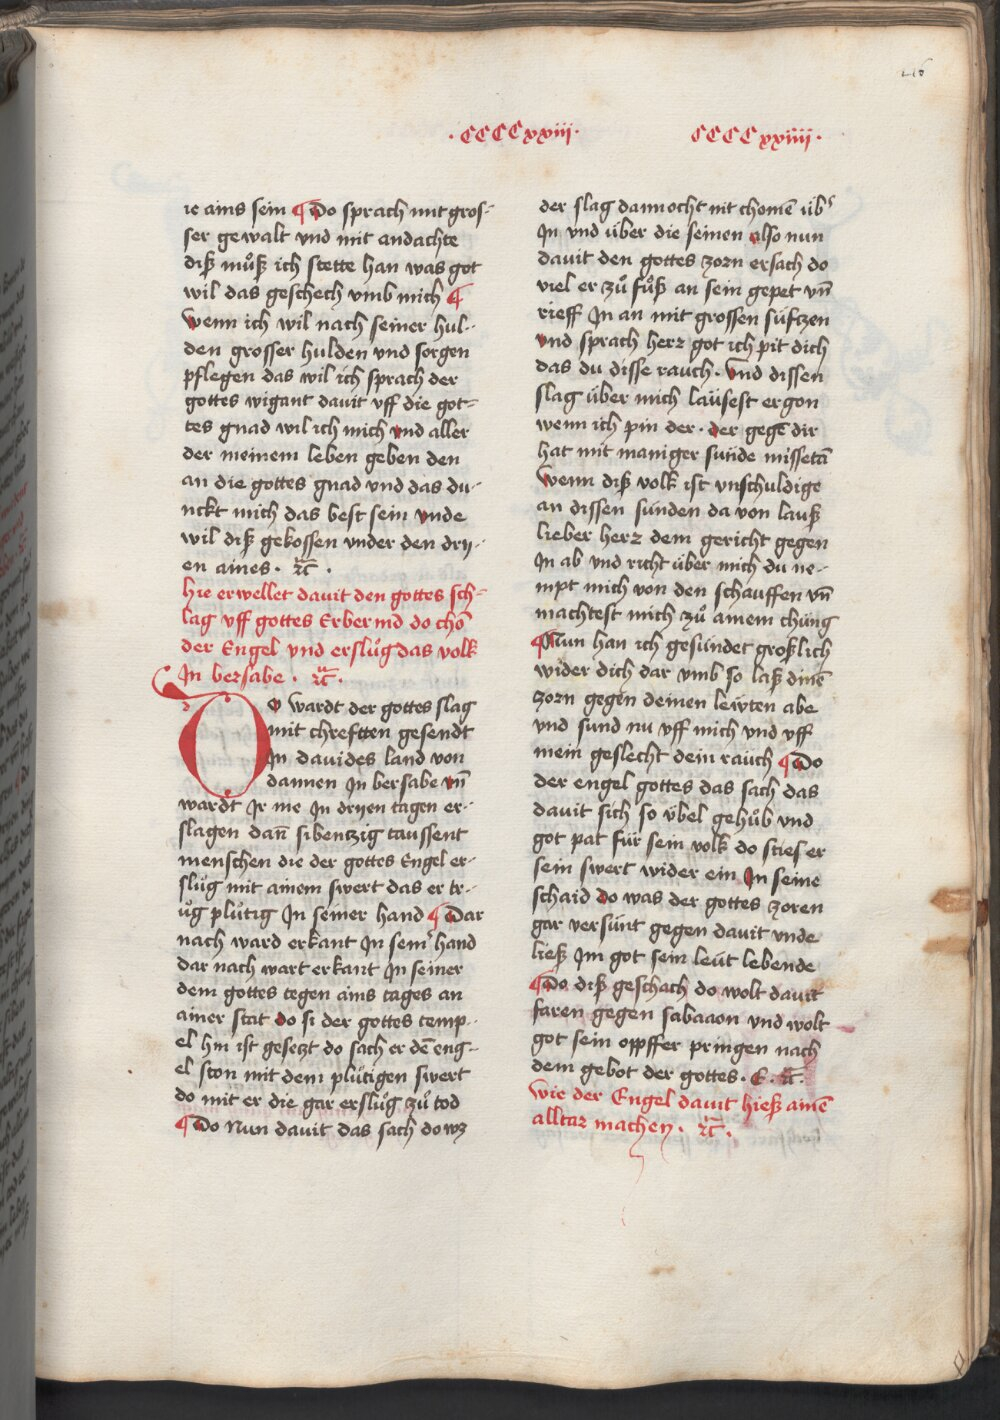 · CCCCxxiii ·
CCCCxxiiii ·
ie ains sein ¶ Do sprach mit gros-
ser gewalt vnd mit andachte
diß můß ich stette han was got
wil das geschech vmb mich ¶
Wenn ich wil nach seiner hul-
den grosser hulden vnd sorgen
pflegen das wil ich sprach der
gottes wigant dauit vff die got-
tes gnad wil ich mich vnd aller
der meinem leben geben den
an die gottes gnad vnd das du-
nckt mich das best sein vnde
wil diß gekossen vnder den dry-
en aines · ꝛc̄ ·
Hie erwellet dauit den gottes sch-
lag vff gottes Erbermd do chō
der Engel vnd erslůg das volk
In bersabe · ꝛc̄ ·
Do wardt der gottes slag
mit chrefften gesendt
In dauides land von
dannen In bersabe vn̄
wardt Jr me In dryen tagen er-
slagen dan̄ sibentzig taussent
menschen die der gottes Engel er-
slůg mit ainem swert das er tr-
ůg plůtig In seiner hand ¶ Dar
nach ward erkant In sem̕ hand
dar nach wart erkant In seiner
dem gottes tegen ains tages an
ainer stat do si der gottes temp-
el hin ist gesetzt do sach er dē eng-
el ston mit dem plůtigen swert
do mit er die gar erslůg zů tod
¶ Do Nun dauit das sach do wz
der slag dannocht nit chomē üb̕
In vnd über die seinen also nun
dauit den gottes zorn ersach do
viel er zů fůß an sein gepet vn̄
rieff In an mit grossen süftzen
vnd sprach herz got ich pit dich
das du disse rauch · Vnd dissen
slag über mich laüsest ergon
wenn ich pin der · der gegē dir
hat mit maniger sunde missetā
Wenn diß volk ist vnschuldige
an dissen sunden da von lauß
lieber herz dem gericht gegen
In ab vnd richt über mich du ne-
mpt mich von den schauffen vn̄
machtest mich zů ainem chüng
¶ Nun han ich gesündet größlich
wider dich dar vmb so laß dinē
zorn gegen deinen lewten abe
vnd sund nu vff mich vnd vff
mein geslecht dein rauch ¶ Do
der engel gottes das sach das
dauit sich so übel gehůb vnd
got pat für sein volk do sties er
sein swert wider ein In seine
schaid do was der gottes zoren
gar versünt gegen dauit vnde
ließ Im got sein leüt lebende
¶ Do diß geschach do wolt dauit
faren gegen sabaaon vnd wolt
got sein opffer pringen nach
dem gebot der gottes · E · ꝛc̄ ·
Wie der Engel dauit hieß ainē
alltar machen · ꝛc̄ ·